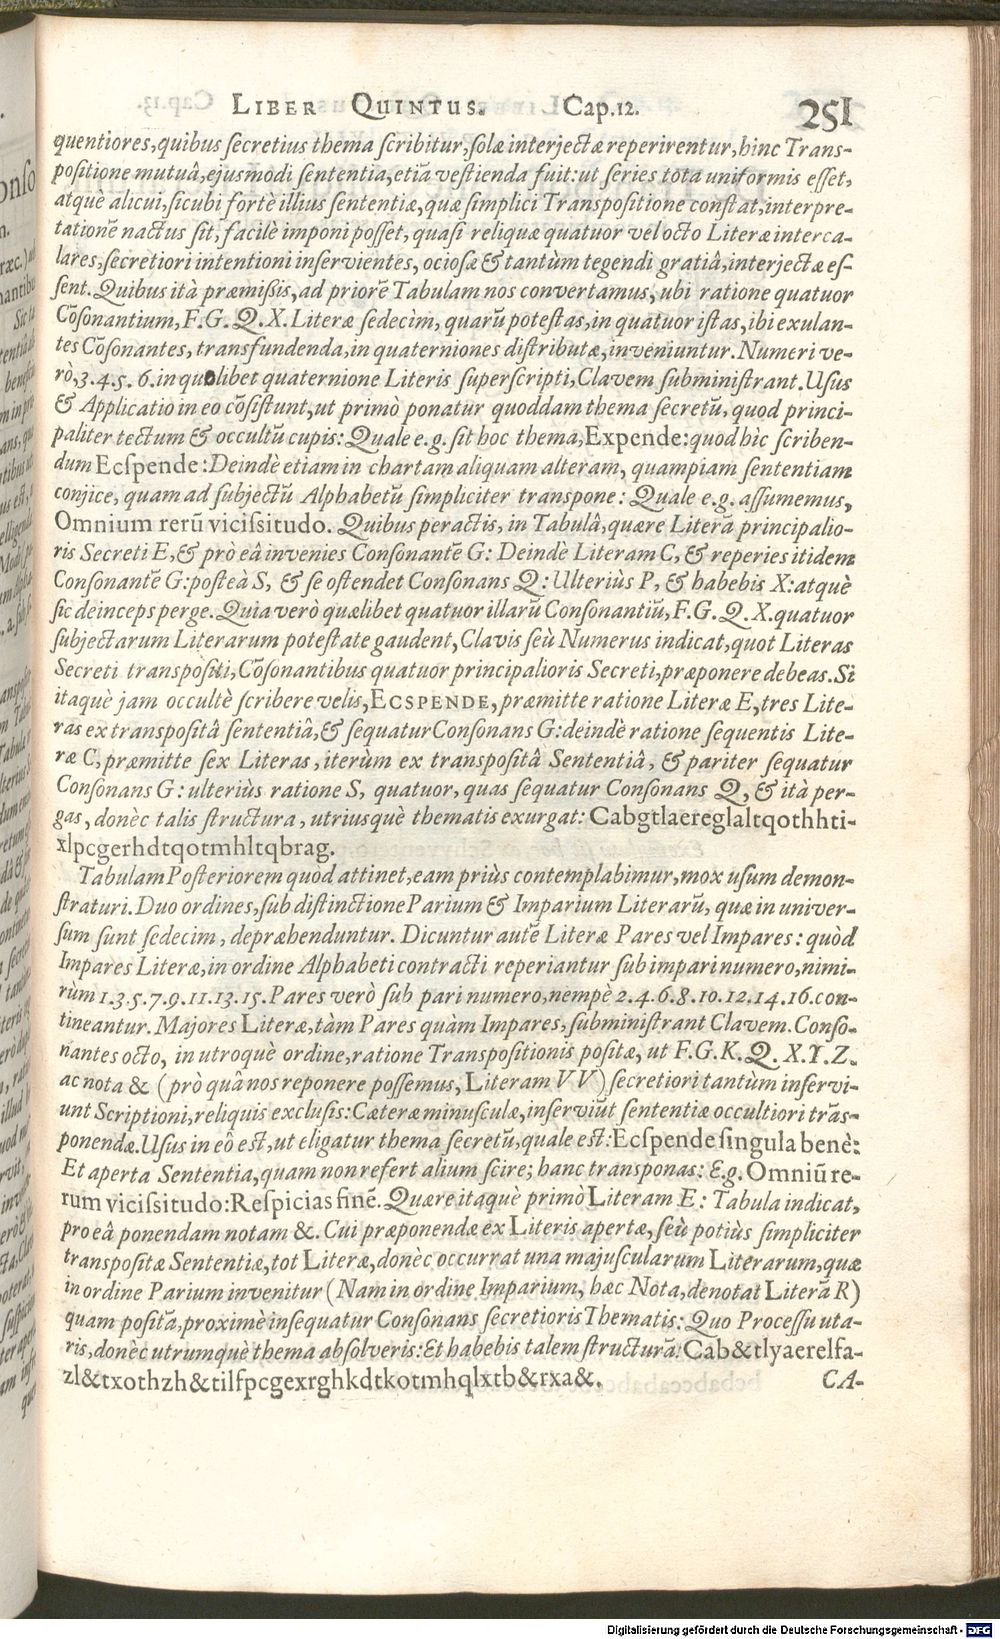 LIBER QUINTUS. Cap.12. 251
quentiores, quibus secretius thema scribitur, solæ interjectæ reperirentur, hinc Trans-
positione mutuâ, ejusmodi sententia, etiã vestienda fuit: ut series tota uniformis esset,
atquè alicui, sicubi fortè illius sententiæ, quæ simplici Transpositione constat, interpre-
tationẽ nactus sit, facilè imponi posset, quasi reliquæ quatuor vel octo Literæ interca-
lares, secretiori intentioni inservientes, ociosæ & tantùm tegendi gratiâ, interjectæ es-
sent. Quibus ità præmißis, ad priorẽ Tabulam nos convertamus, ubi ratione quatuor
Cõsonantium, F. G. Q. X. Literæ sedecìm, quarũ potestas, in quatuor istas, ibi exulan-
tes Cõsonantes, transfundenda, in quaterniones distributæ, inveniuntur. Numeri ve-
rò, 3. 4. 5. 6. in quolibet quaternione Literis superscripti, Clavem subministrant. Usus
& Applicatio in eo cõsistunt, ut primò ponatur quoddam thema secretũ, quod princi-
paliter tectum & occultũ cupis: Quale e. g. sit hoc thema, Expende: quod hìc scriben-
dum Ecspende: Deindè etiam in chartam aliquam alteram, quampiam sententiam
conjice, quam ad subjectũ Alphabetũ simpliciter transpone: Quale e. g. assumemus,
Omnium rerũ vicissitudo. Quibus peractis, in Tabulâ, quære Literã principalio-
ris Secreti E, & prò eâ invenies Consonantẽ G: Deindè Literam C, & reperies itidem
Consonantẽ G: posteà S, & se ostendet Consonans Q: Ulteriùs P, & habebis X: atquè
sic deinceps perge. Quia verò quælibet quatuor illarũ Consonantiũ, F. G. Q. X. quatuor
subjectarum Literarum potestate gaudent, Clavis seù Numerus indicat, quot Literas
Secreti transpositi, Cõsonantibus quatuor principalioris Secreti, præponere debeas. Si
itaquè jam occultè scribere velis, ECSPENDE, præmitte ratione Literæ E, tres Lite-
ras ex transpositâ sententiâ, & sequatur Consonans G: deindè ratione sequentis Lite-
ræ C, præmitte sex Literas, iterùm ex transpositâ Sententiâ, & pariter sequatur
Consonans G: ulteriùs ratione S, quatuor, quas sequatur Consonans Q, & ità per-
gas, donèc talis structura, utriusquè thematis exurgat: Cabgtlaereglaltqothhti-
xlpcgerhdtqotmhltqbrag.
Tabulam Posteriorem quod attinet, eam priùs contemplabimur, mox usum demon-
straturi. Duo ordines, sub distinctione Parium & Imparium Literarũ, quæ in univer-
sum sunt sedecim, depræhenduntur. Dicuntur autẽ Literæ Pares vel Impares: quòd
Impares Literæ, in ordine Alphabeti contracti reperiantur sub impari numero, nimi-
rùm 1. 3. 5. 7. 9. 11. 13. 15. Pares verò sub pari numero, nempè 2. 4. 6. 8. 10. 12. 14. 16. con-
tineantur. Majores Literæ, tàm Pares quàm Impares, subministrant Clavem. Conso-
nantes octo, in utroquè ordine, ratione Transpositionis positæ, ut F. G. K. Q. X. Y. Z.
ac nota & (prò quâ nos reponere possemus, Literam VV) secretiori tantùm inservi-
unt Scriptioni, reliquis exclusis: Cæteræ minusculæ, inserviũt sententiæ occultiori trãs-
ponendæ. Usus in eõ est, ut eligatur thema secretũ, quale est: Ecspende singula benè:
Et aperta Sententia, quam non refert alium scire; hanc transponas: E. g. Omniũ re-
rum vicissitudo: Respicias finẽ. Quære itaquè primò Literam E: Tabula indicat,
pro eâ ponendam notam &. Cui præponendæ ex Literis apertæ, seù potiùs simpliciter
transpositæ Sententiæ, tot Literæ, donèc occurrat una majuscularum Literarum, quæ
in ordine Parium invenitur (Nam in ordine Imparium, hæc Nota, denotat Literã R)
quam positã, proximè insequatur Consonans secretioris Thematis: Quo Processu uta-
ris, donèc utrumquè thema absolveris: Et habebis talem structurã: Cab&tlyaerelfa-
zl&txothzh&tilfpcgexrghkdtkotmhqlxtb&rxa&.
CA-
Digitalisierung gefördert durch die Deutsche Forschungsgemeinschaft - DFG